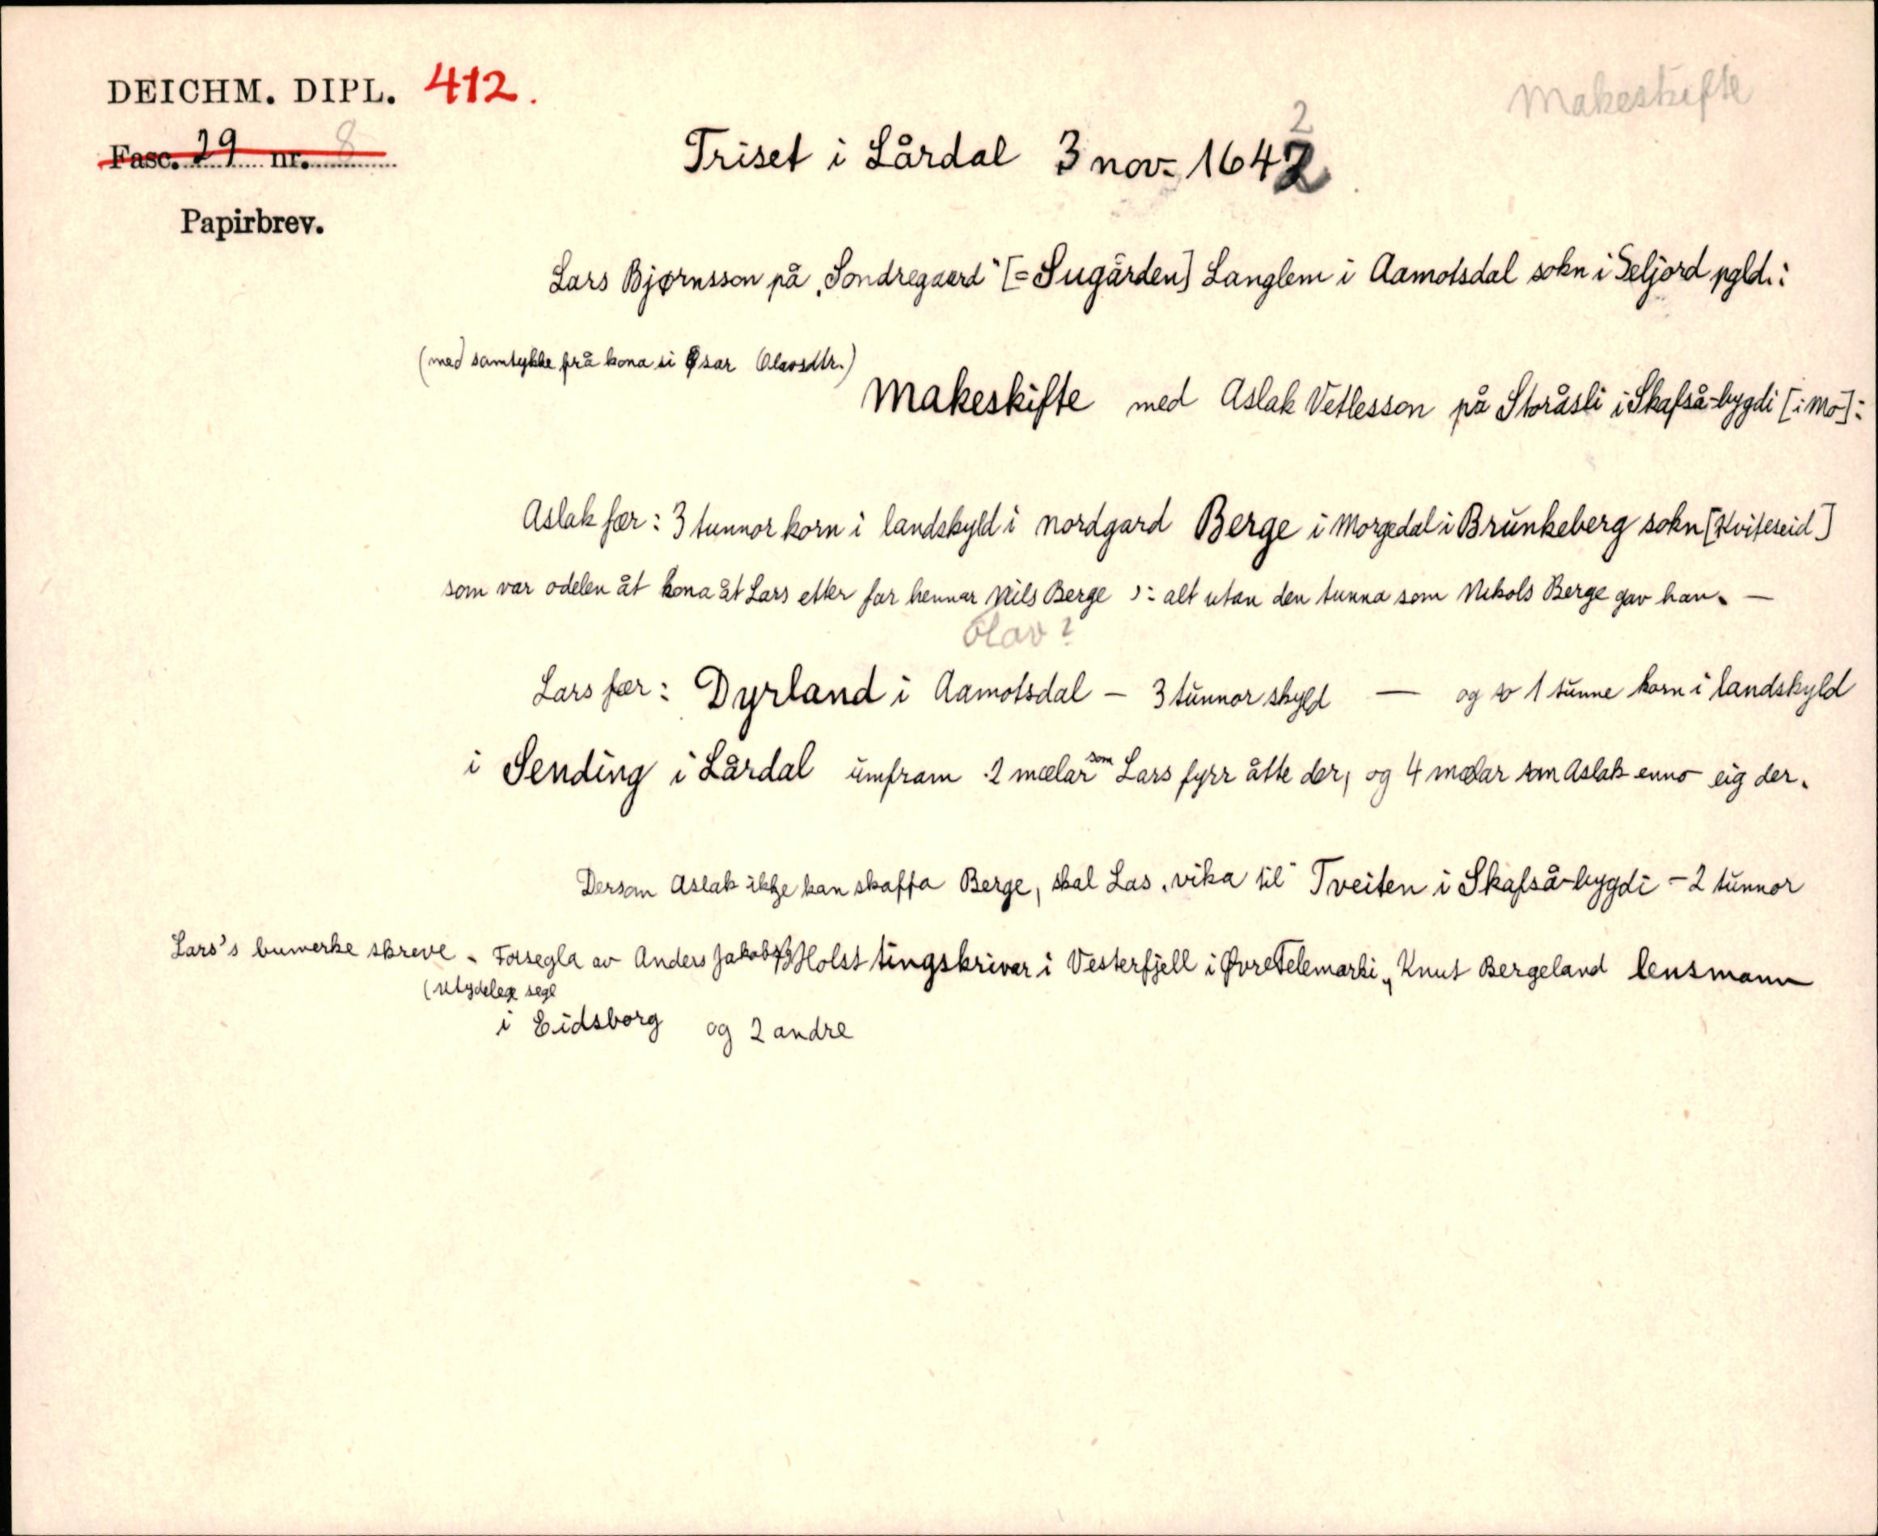 DEICHM. DIPL. 412.
Makeskifte
Fasc. 29 nr. 8
Papirbrev.
2
Triset i Lårdal 3 nov. 1642
Lars Bjørnsson på „Sondregaard" [= Sugården] Langlem i Aamotsdal sokn i Seljord pgld.:
(med samtykke frå kona si Øsar Olavsdtr.)
Makeskifte med Aslak Vetlesson på Storåsli i Skafså-bygdi [i Mo]:
Aslak fær: 3 tunnor korn i landskyld i nordgard Berge i Morgedal i Brunkeberg sokn [Kviteseid]
som var odelen åt kona åt Lars etter far hennar Nils Berge ɔ: alt utan den tunna som Nikols Berge gav han. —
Olav?
Lars fær: Dyrland i Aamotsdal — 3 tunnor skyld — og so 1 tunne korn i landskyld
i Sending i Lårdal umfram 2 mælar som Lars fyrr åtte der, og 4 mælar som Aslak enno eig der.
Dersom Aslak ikkje kan skaffa Berge, skal Las „vika til" Tveiten i Skafså-bygdi — 2 tunnor
Lars's bumerke skreve. Forsegla av Anders Jakobss. Holst tingskrivar i Vesterfjell i Øvre Telemarki, Knut Bergeland lensmann
(utydeleg segl
i Eidsborg og 2 andre